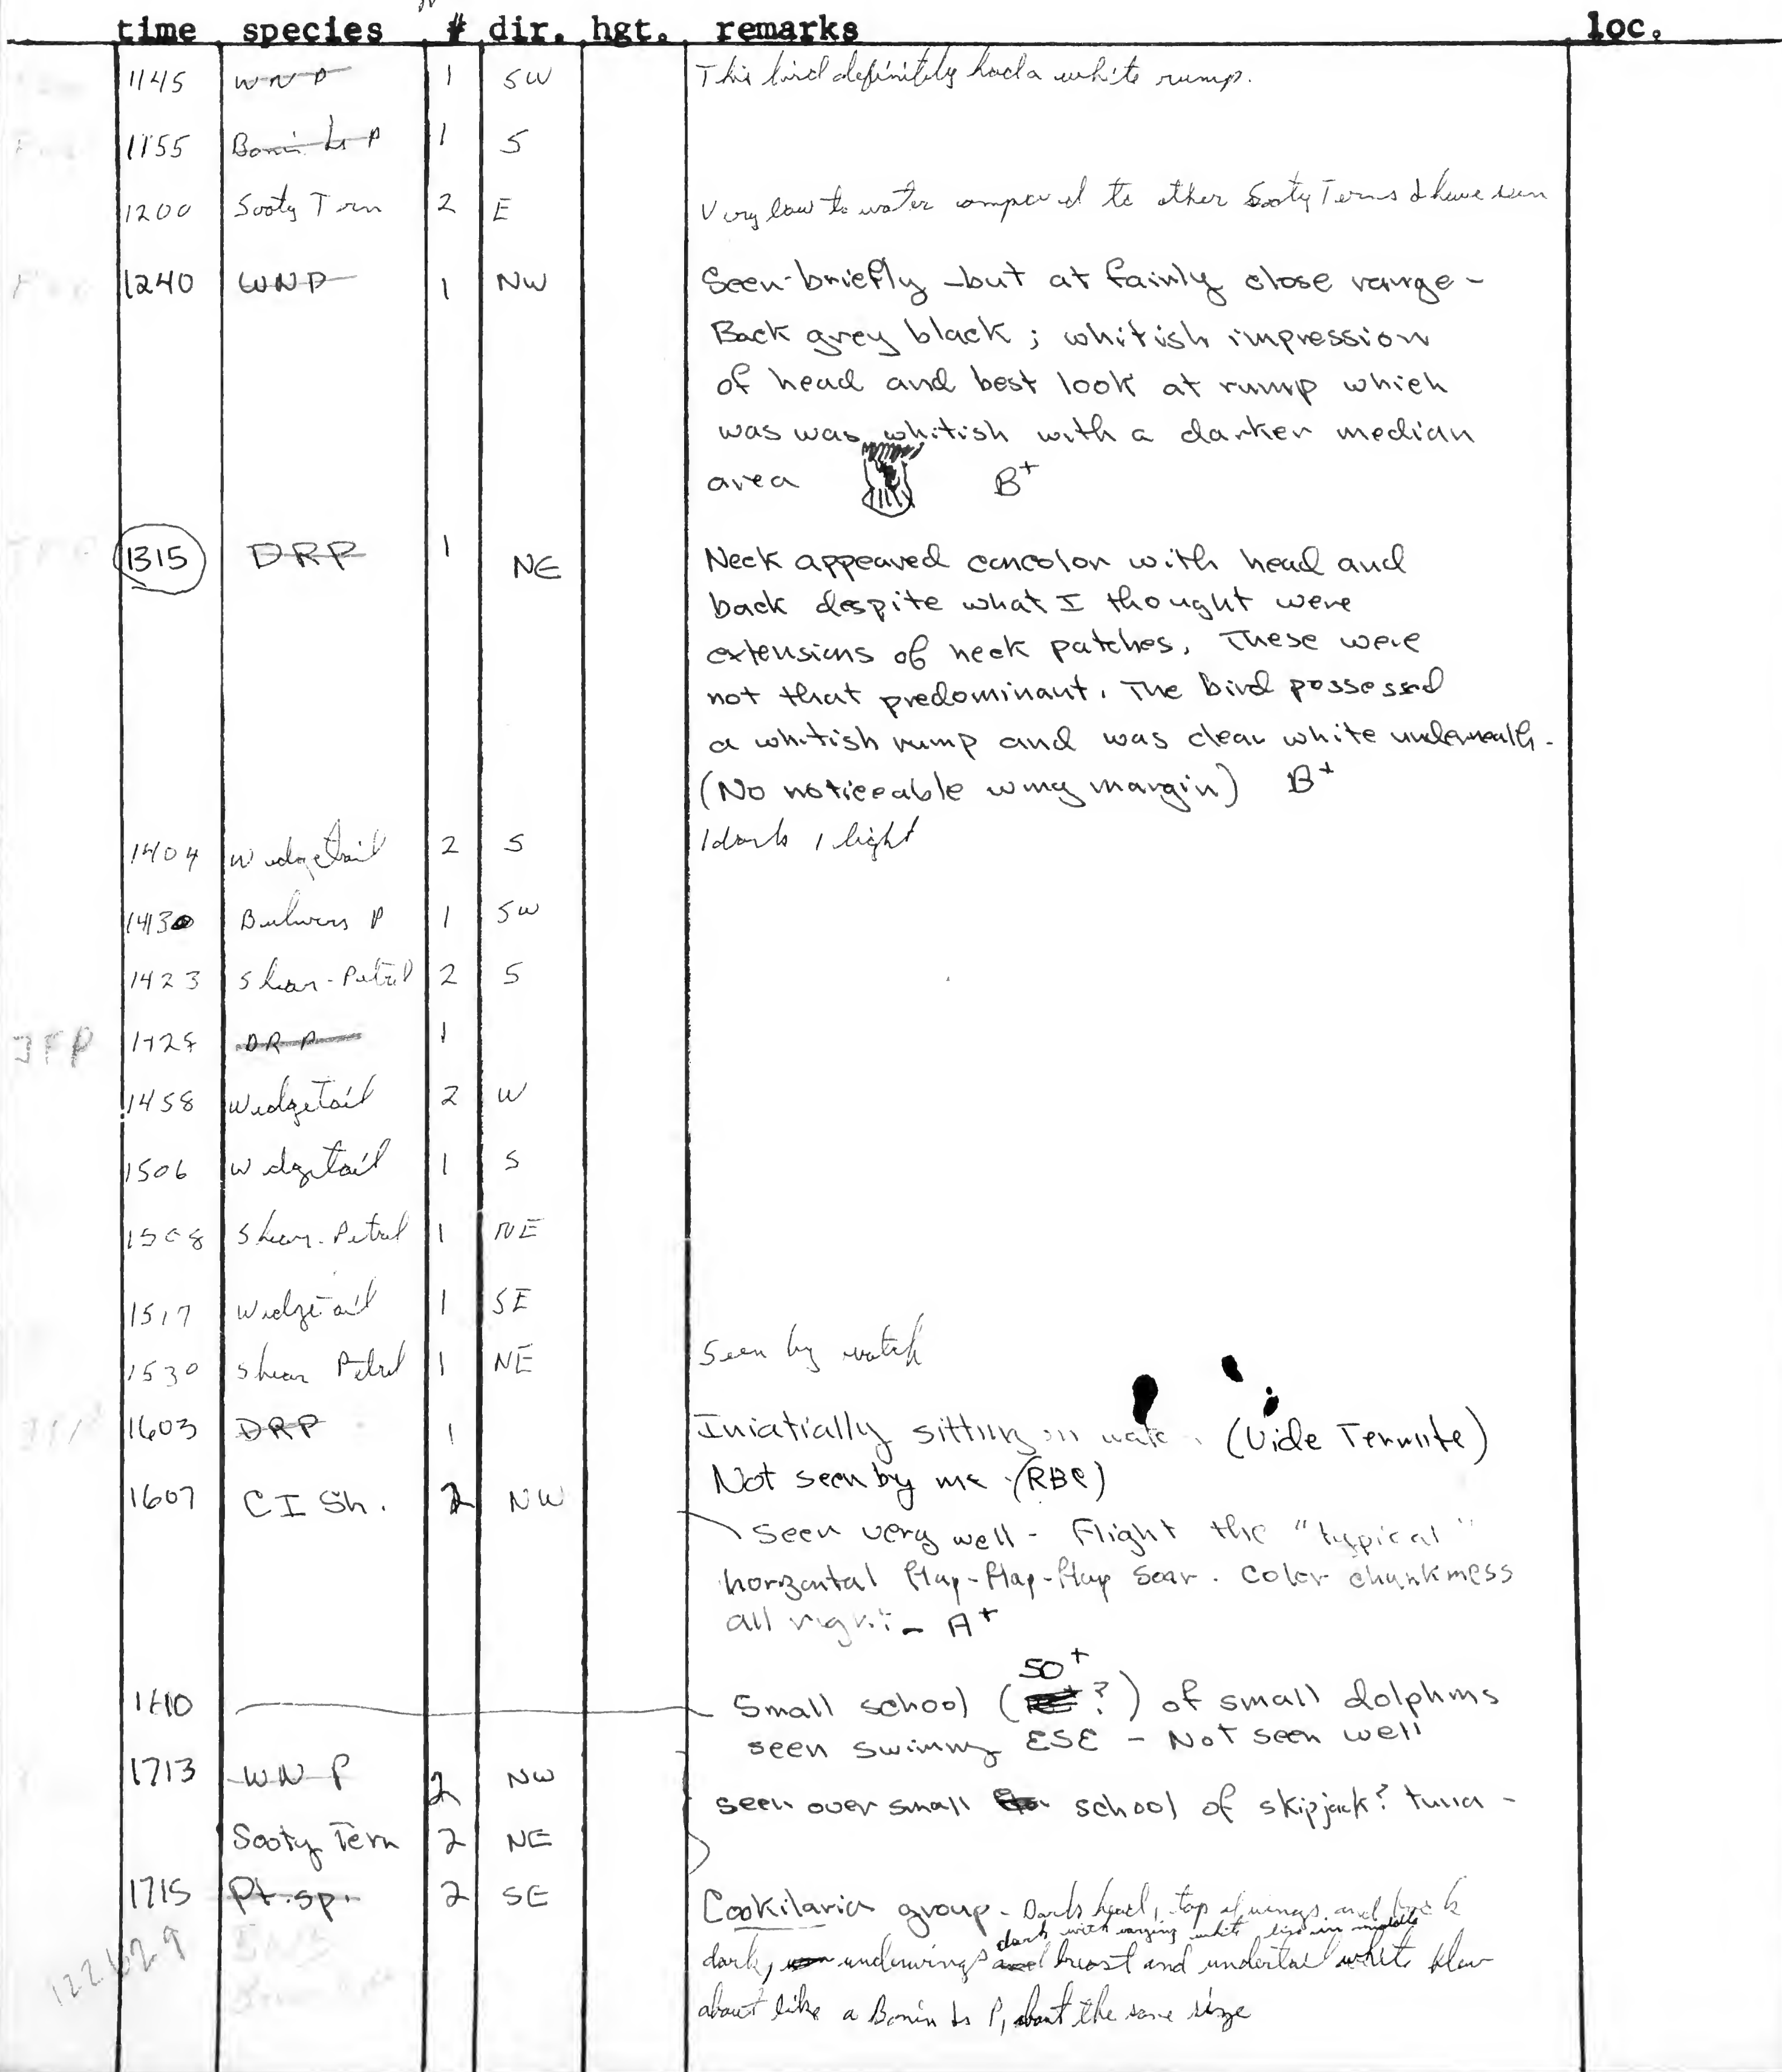 time species # dir. hgt. remarks loc.
1145 WNP 1 SW This bird definitely had a white rump.
1155 Bonin Is P 1 S
1200 Sooty Tern 2 E Very low to water compared to other Sooty Terns I have seen
1240 WNP 1 NW Seen briefly - but at fairly close range -
Back grey black; whitish impression
of head and best look at rump which
was was whitish with a darker median
area B+
1315 DRP 1 NE Neck appeared concolor with head and
back despite what I thought were
extensions of neck patches. These were
not that predominant. The bird possessed
a whitish rump and was clear white underneath.
(No noticeable wing margin) B+
1404 Wedgetail 2 S 1 dark 1 light
1413 Bulwers P 1 SW
1423 Shear-Petrel 2 S
JFP 1428 DRP 1
1458 Wedgetail 2 W
1506 Wedgetail 1 S
1508 Shear-Petrel 1 NE
1517 Wedgetail 1 SE
1530 Shear Petrel 1 NE Seen by watch
1603 DRP 1 Iniatially sitting on water (Vide Termite)
Not seen by me (RBC)
1607 CI Sh. 2 NW
Seen very well - Flight the "typical"
horizontal flap-flap-flap soar. Color chunkiness
all right - A+
50+
1610 Small school (?) of small dolphins
seen swimming ESE - Not seen well
1713 WNP 2 NW seen over small school of skipjack? tuna -
Sooty Tern 2 NE
1715 Pt. sp. 2 SE Cookilaria group - Dark head, top of wings and back
dark with varying white line in middle
dark, underwings breast and undertail white flew
about like a Bonin Is P, about the same size
122629